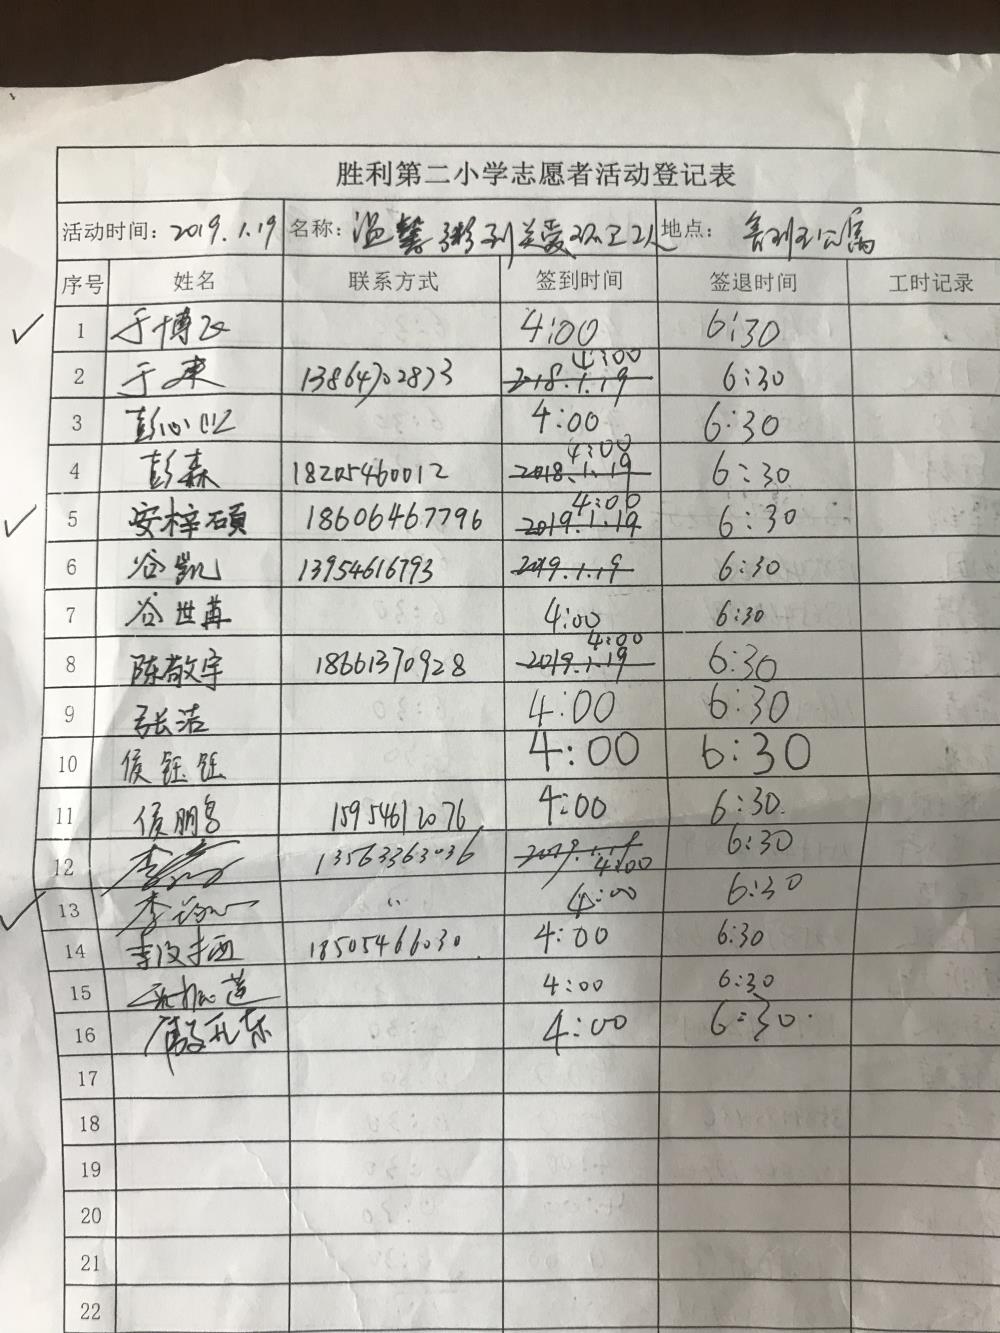 胜利第二小学志愿者活动登记表
活动时间：2019.1.19 名称：温馨粥到关爱环卫工人 地点：公寓
序号 姓名 联系方式 签到时间 签退时间 工时记录
1 于博 4:00 6:30
2 于 13864702873 2018.1.19 4:00 6:30
3 彭 4:00 6:30
4 彭森 18205460012 2018.1.19 4:00 6:30
5 安梓硕 18606467796 2019.1.19 4:00 6:30
6 谷凯 13954616793 2019.1.19 6:30
7 谷世苒 4:00 6:30
8 陈敬宇 18661370928 2019.1.19 4:00 6:30
9 张洁 4:00 6:30
10 侯钰钰 4:00 6:30
11 侯朋 15954612076 4:00 6:30
12 李 13563363036 2019.1.19 4:00 6:30
13 李 〃 4:00 6:30
14 李汶 18505466030 4:00 6:30
15 4:00 6:30
16 4:00 6:30
17
18
19
20
21
22